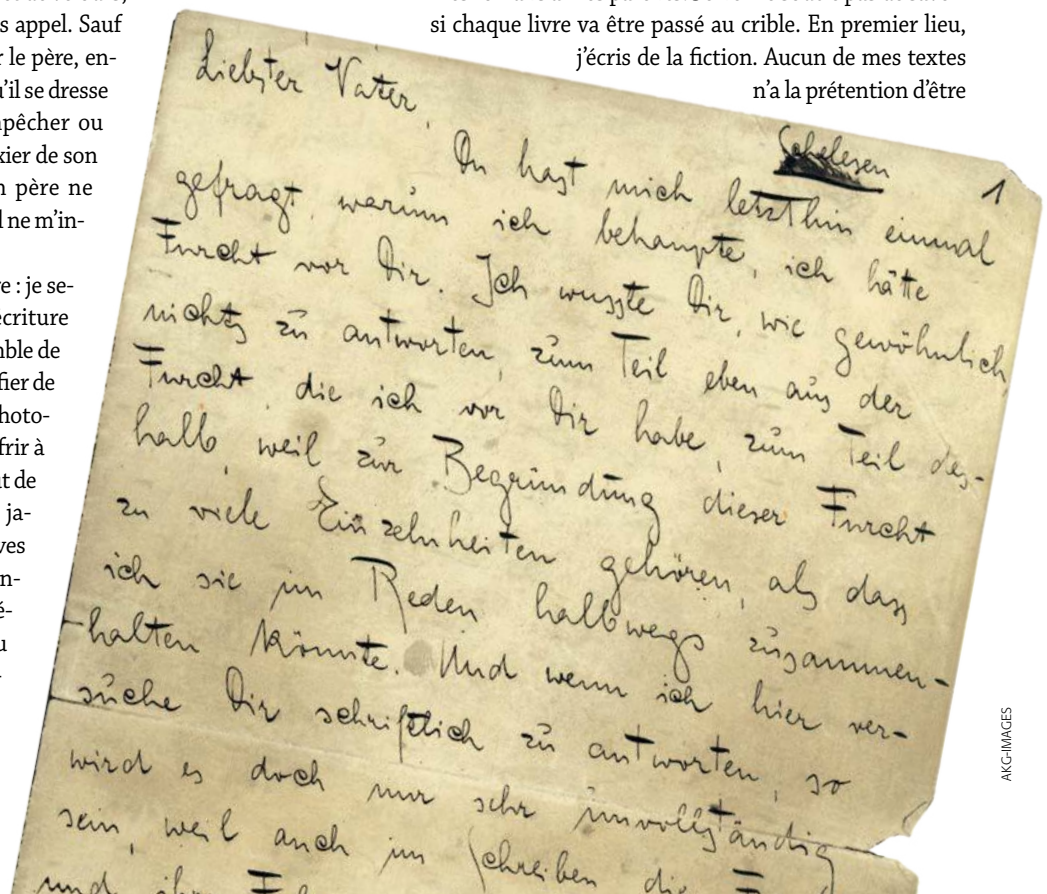 s appel. Sauf
r le père, en-
u'il se dresse
pêcher ou
xier de son
n père ne
l ne m'in-
e : je se-
écriture
ble de
fier de
hoto-
frir à
it de
ja-
ves
n-
é-
u
si chaque livre va être passé au crible. En premier lieu,
j'écris de la fiction. Aucun de mes textes
n'a la prétention d'être
Schelesen
1
Liebster Vater,
Du hast mich letzthin einmal
gefragt, warum ich behaupte, ich hätte
Furcht vor Dir. Ich wusste Dir, wie gewöhnlich,
nichts zu antworten, zum Teil eben aus der
Furcht, die ich vor Dir habe, zum Teil des-
halb, weil zur Begründung dieser Furcht
zu viele Einzelnheiten gehören, als dass
ich sie im Reden halbwegs zusammen-
halten könnte. Und wenn ich hier ver-
suche Dir schriftlich zu antworten, so
wird es doch nur sehr unvollständig
sein, weil auch im Schreiben die F
und ihre F
AKG-IMAGES